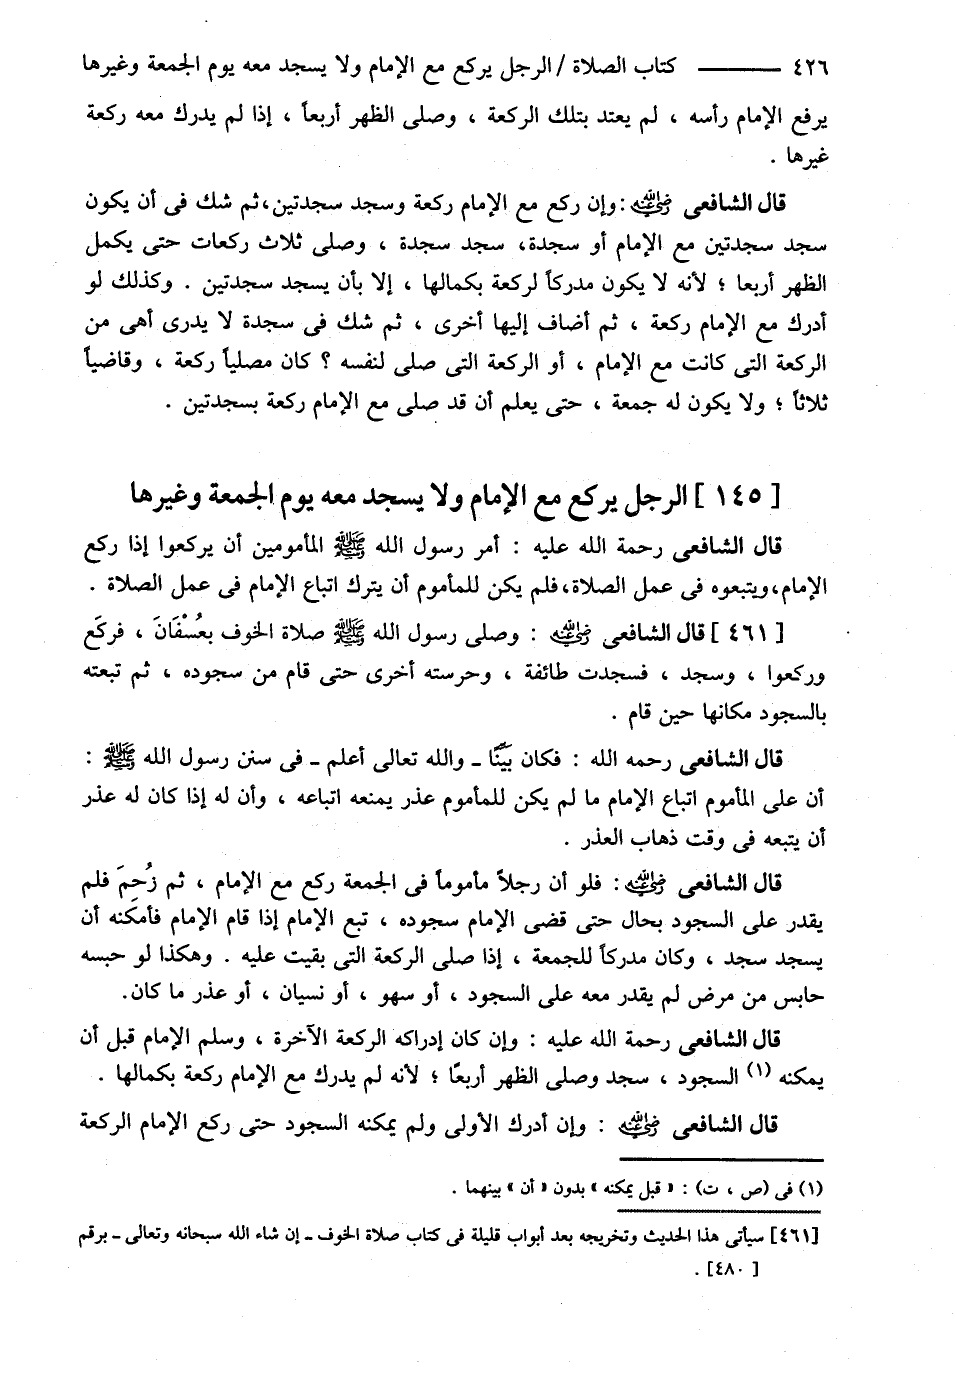 ٤٢٦ ــــــــ كتاب الصلاة / الرجل يركع مع الإمام ولا يسجد معه يوم الجمعة وغيرها
يرفع الإمام رأسه ، لم يعتد بتلك الركعة ، وصلى الظهر أربعاً ، إذا لم يدرك معه ركعة
غيرها .
قال الشافعى رضي الله عنه : وإن ركع مع الإمام ركعة وسجد سجدتين ، ثم شك فى أن يكون
سجد سجدتين مع الإمام أو سجدة ، سجد سجدة ، وصلى ثلاث ركعات حتى يكمل
الظهر أربعا ؛ لأنه لا يكون مدركاً لركعة بكمالها ، إلا بأن يسجد سجدتين . وكذلك لو
أدرك مع الإمام ركعة ، ثم أضاف إليها أخرى ، ثم شك فى سجدة لا يدرى أهى من
الركعة التى كانت مع الإمام ، أو الركعة التى صلى لنفسه ؟ كان مصلياً ركعة ، وقاضياً
ثلاثاً ؛ ولا يكون له جمعة ، حتى يعلم أن قد صلى مع الإمام ركعة بسجدتين .
[ ١٤٥ ] الرجل يركع مع الإمام ولا يسجد معه يوم الجمعة وغيرها
قال الشافعى رحمة الله عليه : أمر رسول الله ﷺ المأمومين أن يركعوا إذا ركع
الإمام ، ويتبعوه فى عمل الصلاة ، فلم يكن للمأموم أن يترك اتباع الإمام فى عمل الصلاة .
[ ٤٦١ ] قال الشافعى رضي الله عنه : وصلى رسول الله ﷺ صلاة الخوف بعُسْفَانَ ، فركَع
وركعوا ، وسجد ، فسجدت طائفة ، وحرسته أخرى حتى قام من سجوده ، ثم تبعته
بالسجود مكانها حين قام .
قال الشافعى رحمه الله : فكان بَيِّنًا ـ والله تعالى أعلم ـ فى سنن رسول الله ﷺ :
أن على المأموم اتباع الإمام ما لم يكن للمأموم عذر يمنعه اتباعه ، وأن له إذا كان له عذر
أن يتبعه فى وقت ذهاب العذر .
قال الشافعى رضي الله عنه : فلو أن رجلاً مأموماً فى الجمعة ركع مع الإمام ، ثم زُحِمَ فلم
يقدر على السجود بحال حتى قضى الإمام سجوده ، تبع الإمام إذا قام الإمام فأمكنه أن
يسجد سجد ، وكان مدركاً للجمعة ، إذا صلى الركعة التى بقيت عليه . وهكذا لو حبسه
حابس من مرض لم يقدر معه على السجود ، أو سهو ، أو نسيان ، أو عذر ما كان.
قال الشافعى رحمة الله عليه : وإن كان إدراكه الركعة الآخرة ، وسلم الإمام قبل أن
يمكنه (١) السجود ، سجد وصلى الظهر أربعًا ؛ لأنه لم يدرك مع الإمام ركعة بكمالها .
قال الشافعى رضي الله عنه : وإن أدرك الأولى ولم يمكنه السجود حتى ركع الإمام الركعة
(١) فى (ص ، ت) : « قبل يمكنه » بدون « أن » بينهما .
[٤٦١] سيأتى هذا الحديث وتخريجه بعد أبواب قليلة فى كتاب صلاة الخوف ـ إن شاء الله سبحانه وتعالى ـ برقم
[ ٤٨٠] .